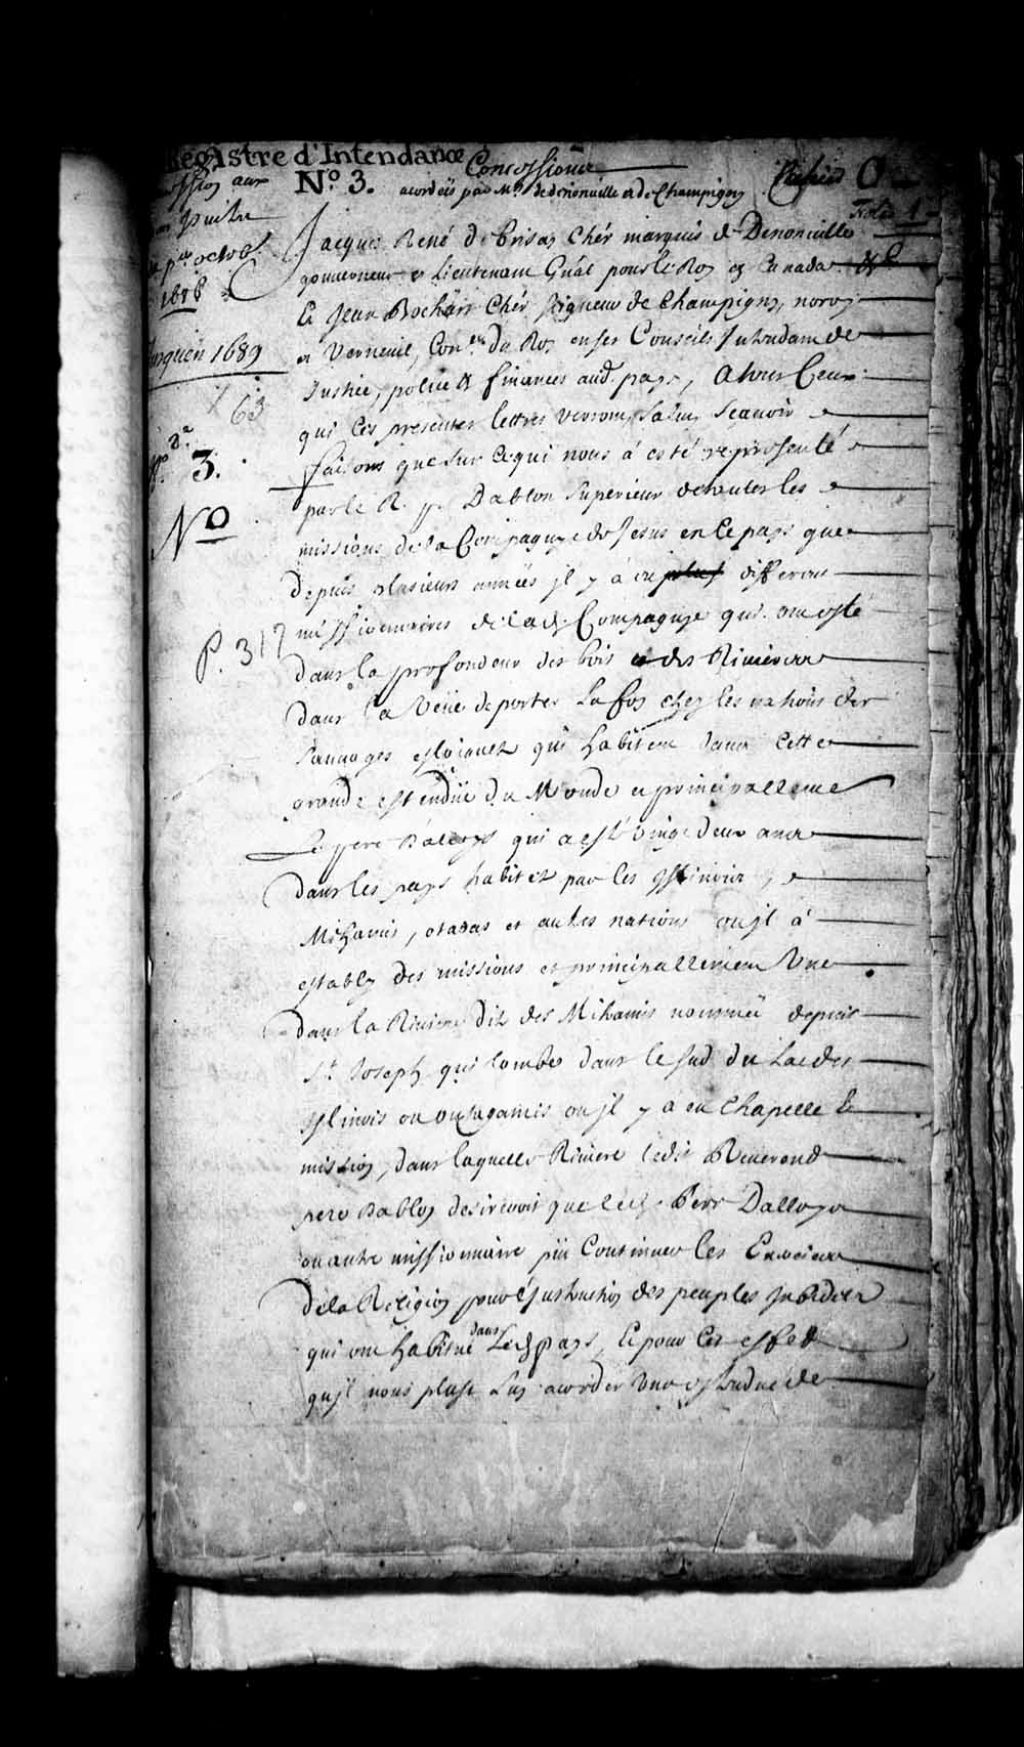 Registre d'Intendance
Concessions
No. 3. acordéés par Mrs. de denonuille et de Champigny
O
folio 1
aux
Jesuites
1er octob.
1686
1689
63
3.
No
P. 317
Jacques René de Brisay Chér marquis de Denonuille
gouuerneur et Lieutenant Gnâl pour le Roy en Canada &
Et Jean Bochart Chér seigneur de Champigny, noroy
et Verneuil, Conser. du Roy en ses Conseils Intendant de
Justice, police & finances aud. pays, A tous Ceux
qui Ces presentes lettres verront, salut, scauoir
faisons que sur Ce qui nous á esté representé
par le R. p. Dablon superieur de toutes les
missions de la Compagnye de Jesus en Ce pays que
depuis plusieurs années jl y á eu plus differens
missionnaires de lad. Compagnye qui ont esté
dans la profondeur des bois et des Riuieres
dans la Veüe de porter La foy chez les nations des
sauuages esloignez qui habitent dans cette
grande estendüe du Monde et principallement
Le pere Daloys qui a esté Vingt deux ans
dans les pays habitez par les Jslinois,
Mihamis, otaoas et autres nations ou jl á
estably des missions et principallement Une
dans la Riuiere dite des Mihamis nommée depuis
St. Joseph qui tombe dans le sud du Lac des
Jslinois ou outagamis ou jl y a eu Chapelle &
mission, dans laquelle Riuiere ledit Reuerend
pere Dablon desireroit que led. Pere Dalloys
ou autre missionnaire pût Continuer les Exercices
de la Religion pour l'jnstruction des peuples
qui ont habitué dans Led. pays, Et pour Cet effet
qu'jl nous plust Luy acorder Une estendue de